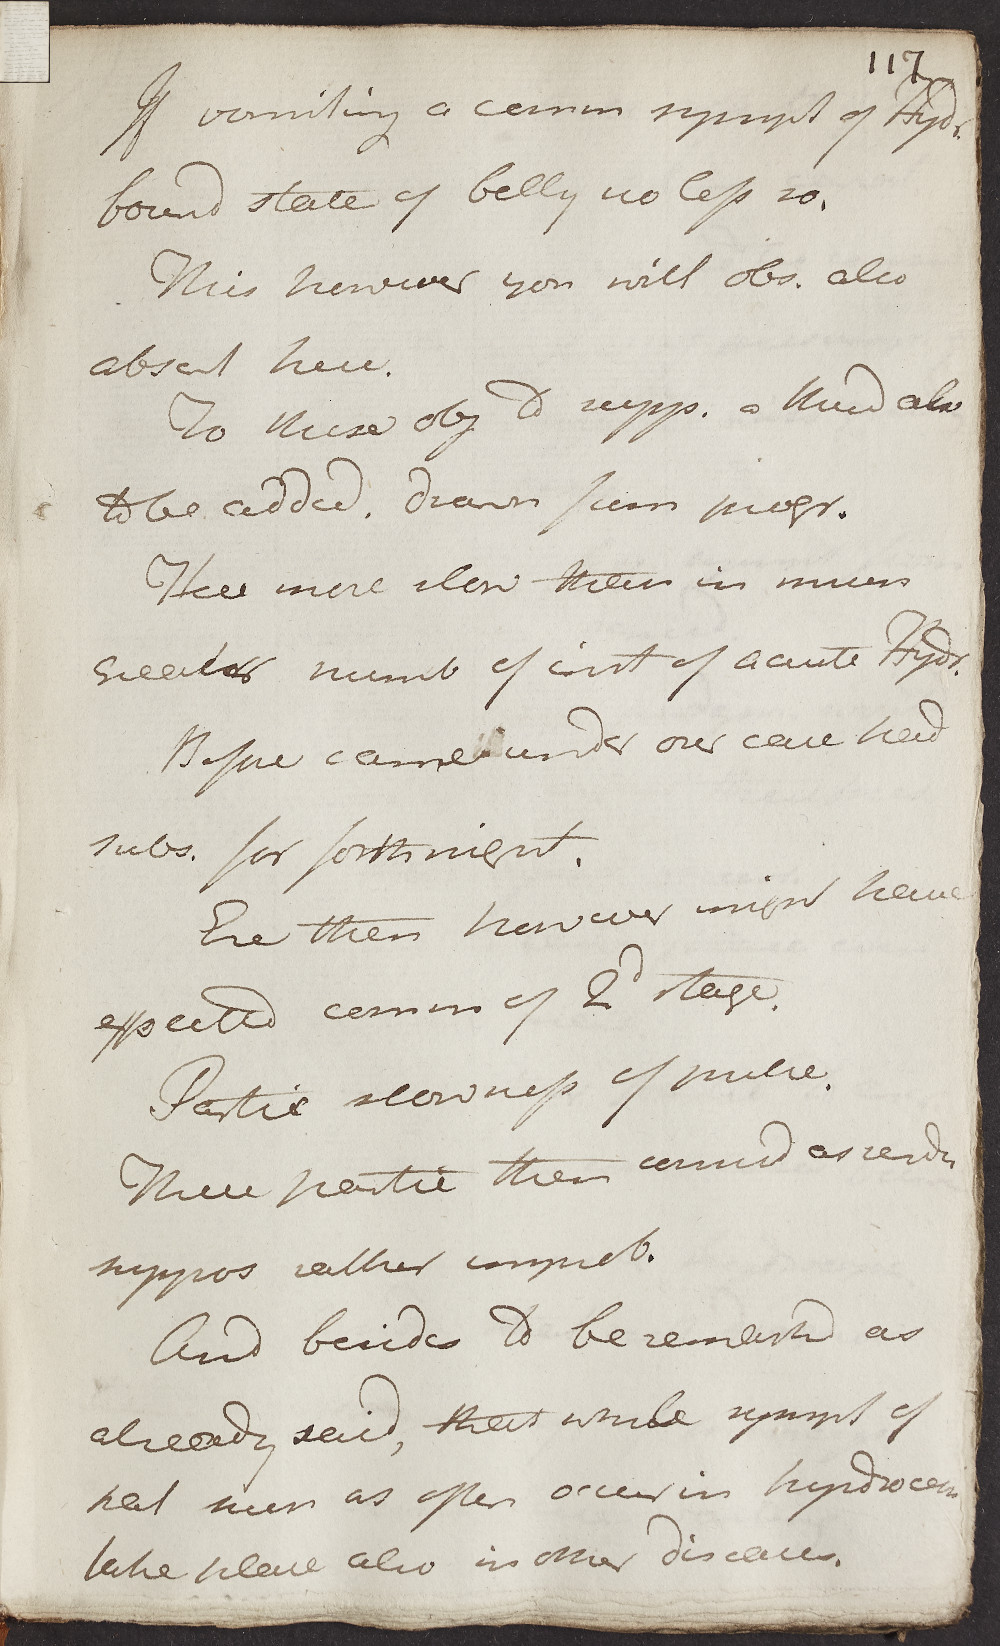 117
If vomiting a comm sympt of Hydr.
bound state of belly no less so.
This however you will obs. also
absent here.
To these obj to supp. a third also
to be added. drawn from progr.
Here more slow than in much
greater numb of inst of acute Hydr.
Before came under our care had
subs. for forthnight.
Ere then however might have
expected comm of 2d stage.
Partic slowness of pulse.
These partic then consid as rendr
suppos rather improb.
And besides to be remarkd as
already said, that while sympt of
nat such as often occur in hydrocep
take place also in other diseases.